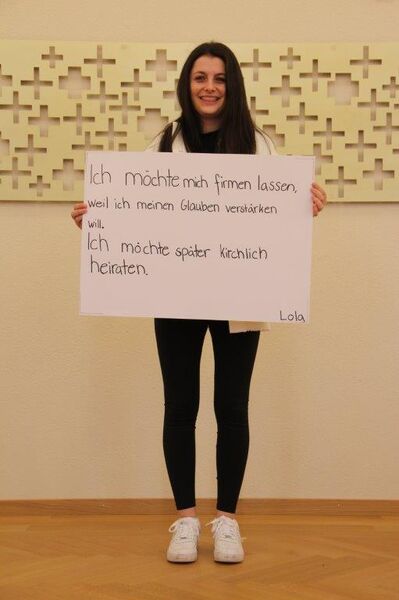 Ich möchte mich firmen lassen,
weil ich meinen Glauben verstärken
will.
Ich möchte später kirchlich
heiraten.
Lola